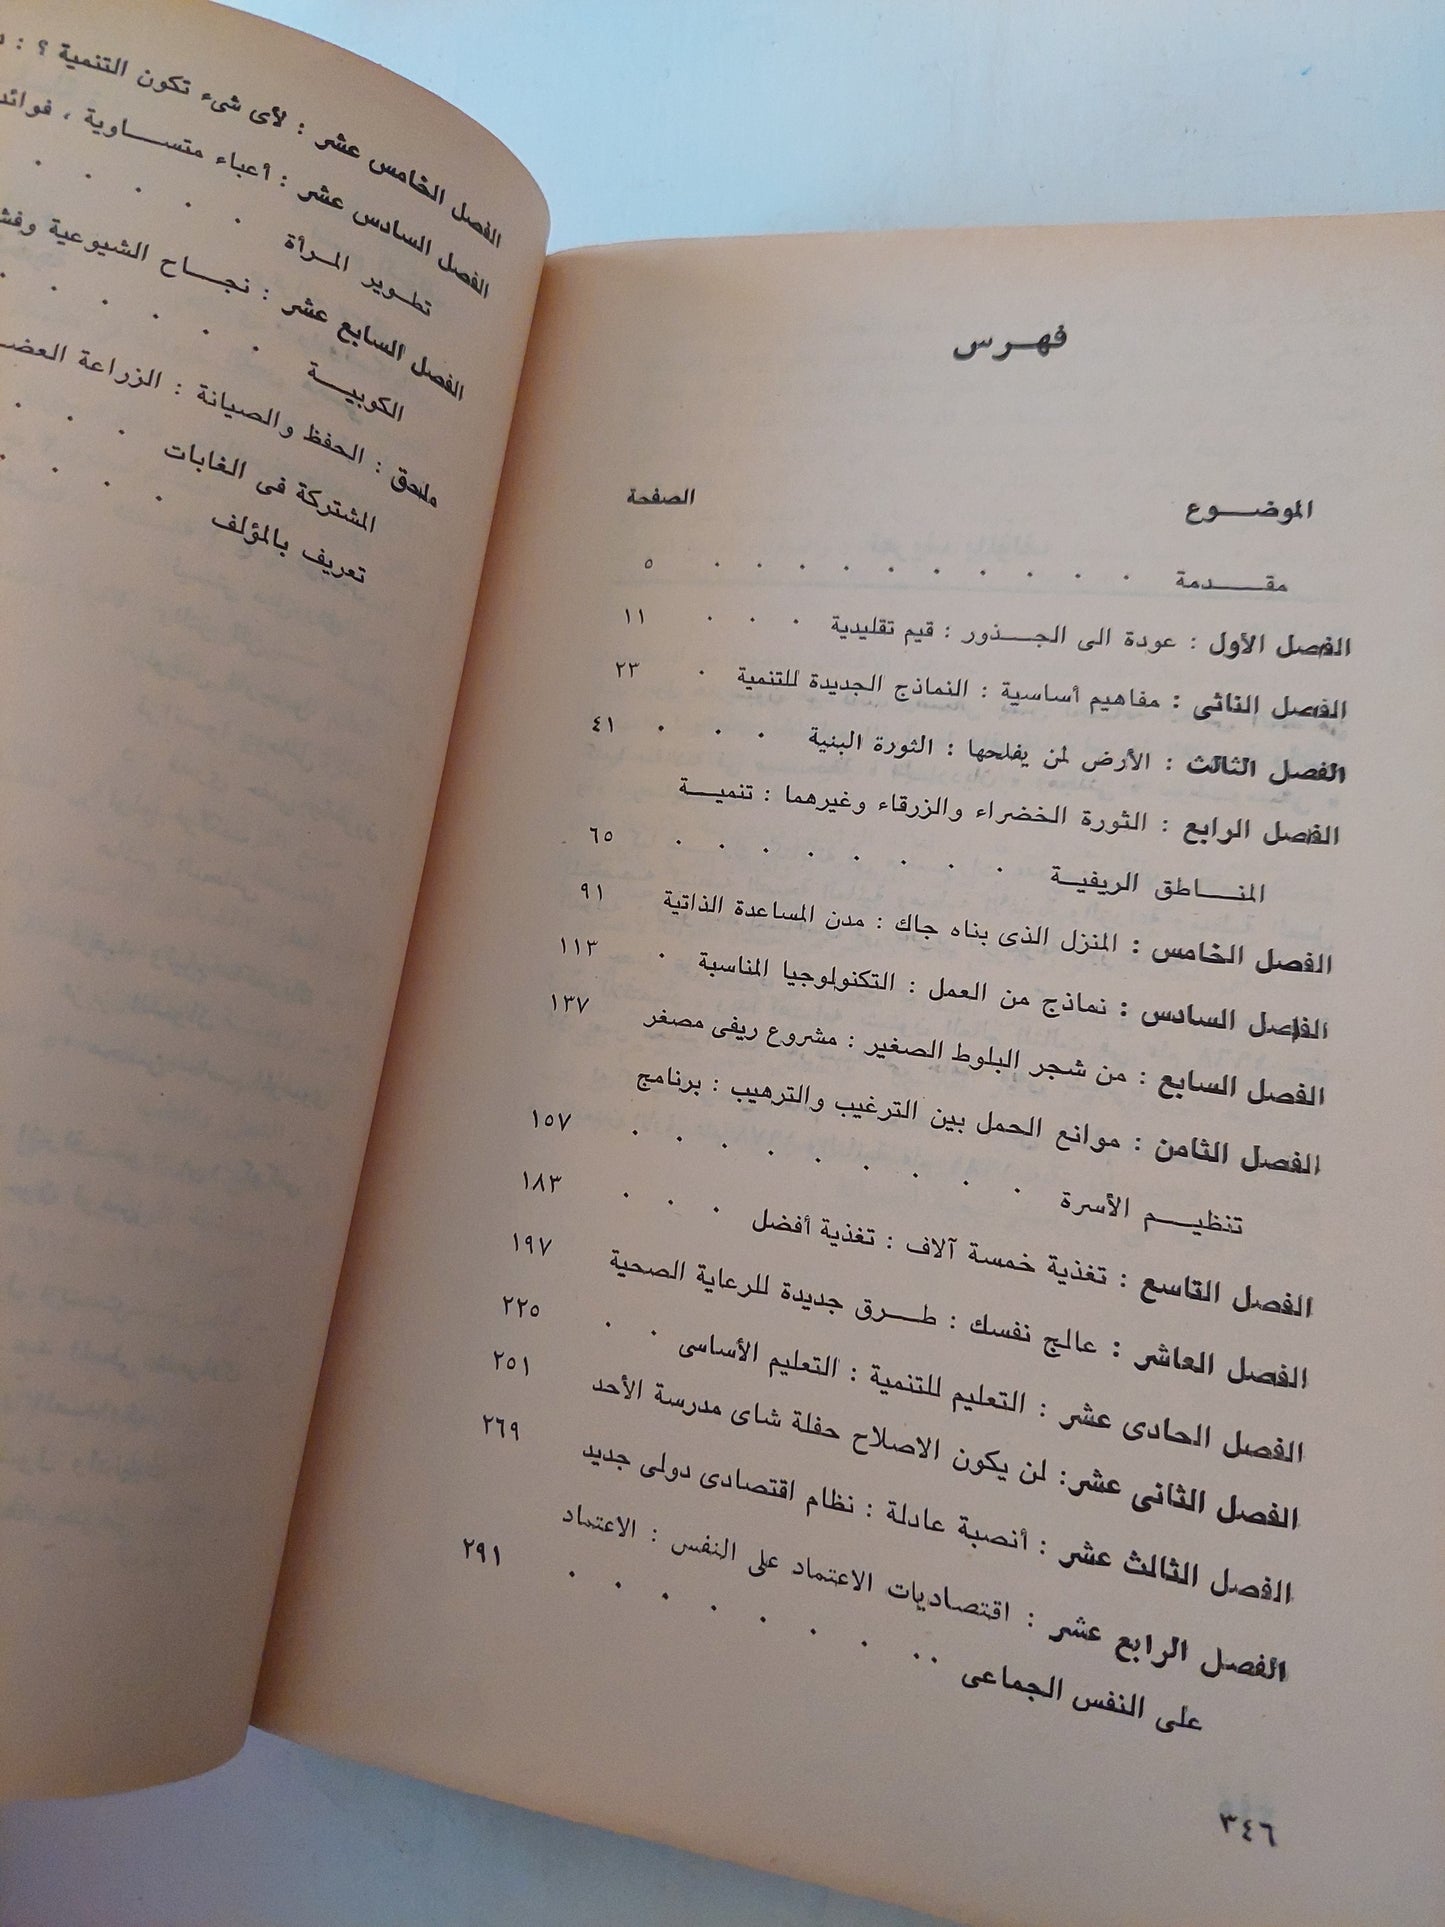 فهرس
الموضوع الصفحة
مقدمة . . . . . . . . ٥
الفصل الأول : عودة الى الجذور : قيم تقليدية . . ١١
الفصل الثانى : مفاهيم أساسية : النماذج الجديدة للتنمية . ٢٣
الفصل الثالث : الأرض لمن يفلحها : الثورة البنية . . . ٤١
الفصل الرابع : الثورة الخضراء والزرقاء وغيرهما : تنمية
المناطق الريفية . . . . . . . . ٦٥
الفصل الخامس : المنزل الذى بناه جاك : مدن المساعدة الذاتية ٩١
الفصل السادس : نماذج من العمل : التكنولوجيا المناسبة . ١١٣
الفصل السابع : من شجر البلوط الصغير : مشروع ريفى مصغر ١٣٧
الفصل الثامن : موانع الحمل بين الترغيب والترهيب : برنامج
تنظيم الأسرة . . . . . . . . . ١٥٧
الفصل التاسع : تغذية خمسة آلاف : تغذية أفضل . . . ١٨٣
الفصل العاشر : عالج نفسك : طرق جديدة للرعاية الصحية ١٩٧
الفصل الحادى عشر : التعليم للتنمية : التعليم الأساسى . . ٢٢٥
الفصل الثانى عشر : لن يكون الاصلاح حفلة شاى مدرسة الأحد ٢٥١
الفصل الثالث عشر : أنصبة عادلة : نظام اقتصادى دولى جديد ٢٦٩
الفصل الرابع عشر : اقتصاديات الاعتماد على النفس : الاعتماد
على النفس الجماعى . . . . . . . . . ٢٩١
٣٤٦
الفصل الخامس عشر : لأى شىء تكون التنمية ؟ :
الفصل السادس عشر : أعباء متساوية ،
تطوير المرأة . . . . .
الفصل السابع عشر : نجاح الشيوعية
الكوبية . . . . . .
ملحق : الحفظ والصيانة : الزراعة
المشتركة فى الغابات . . .
تعريف بالمؤلف . . . .